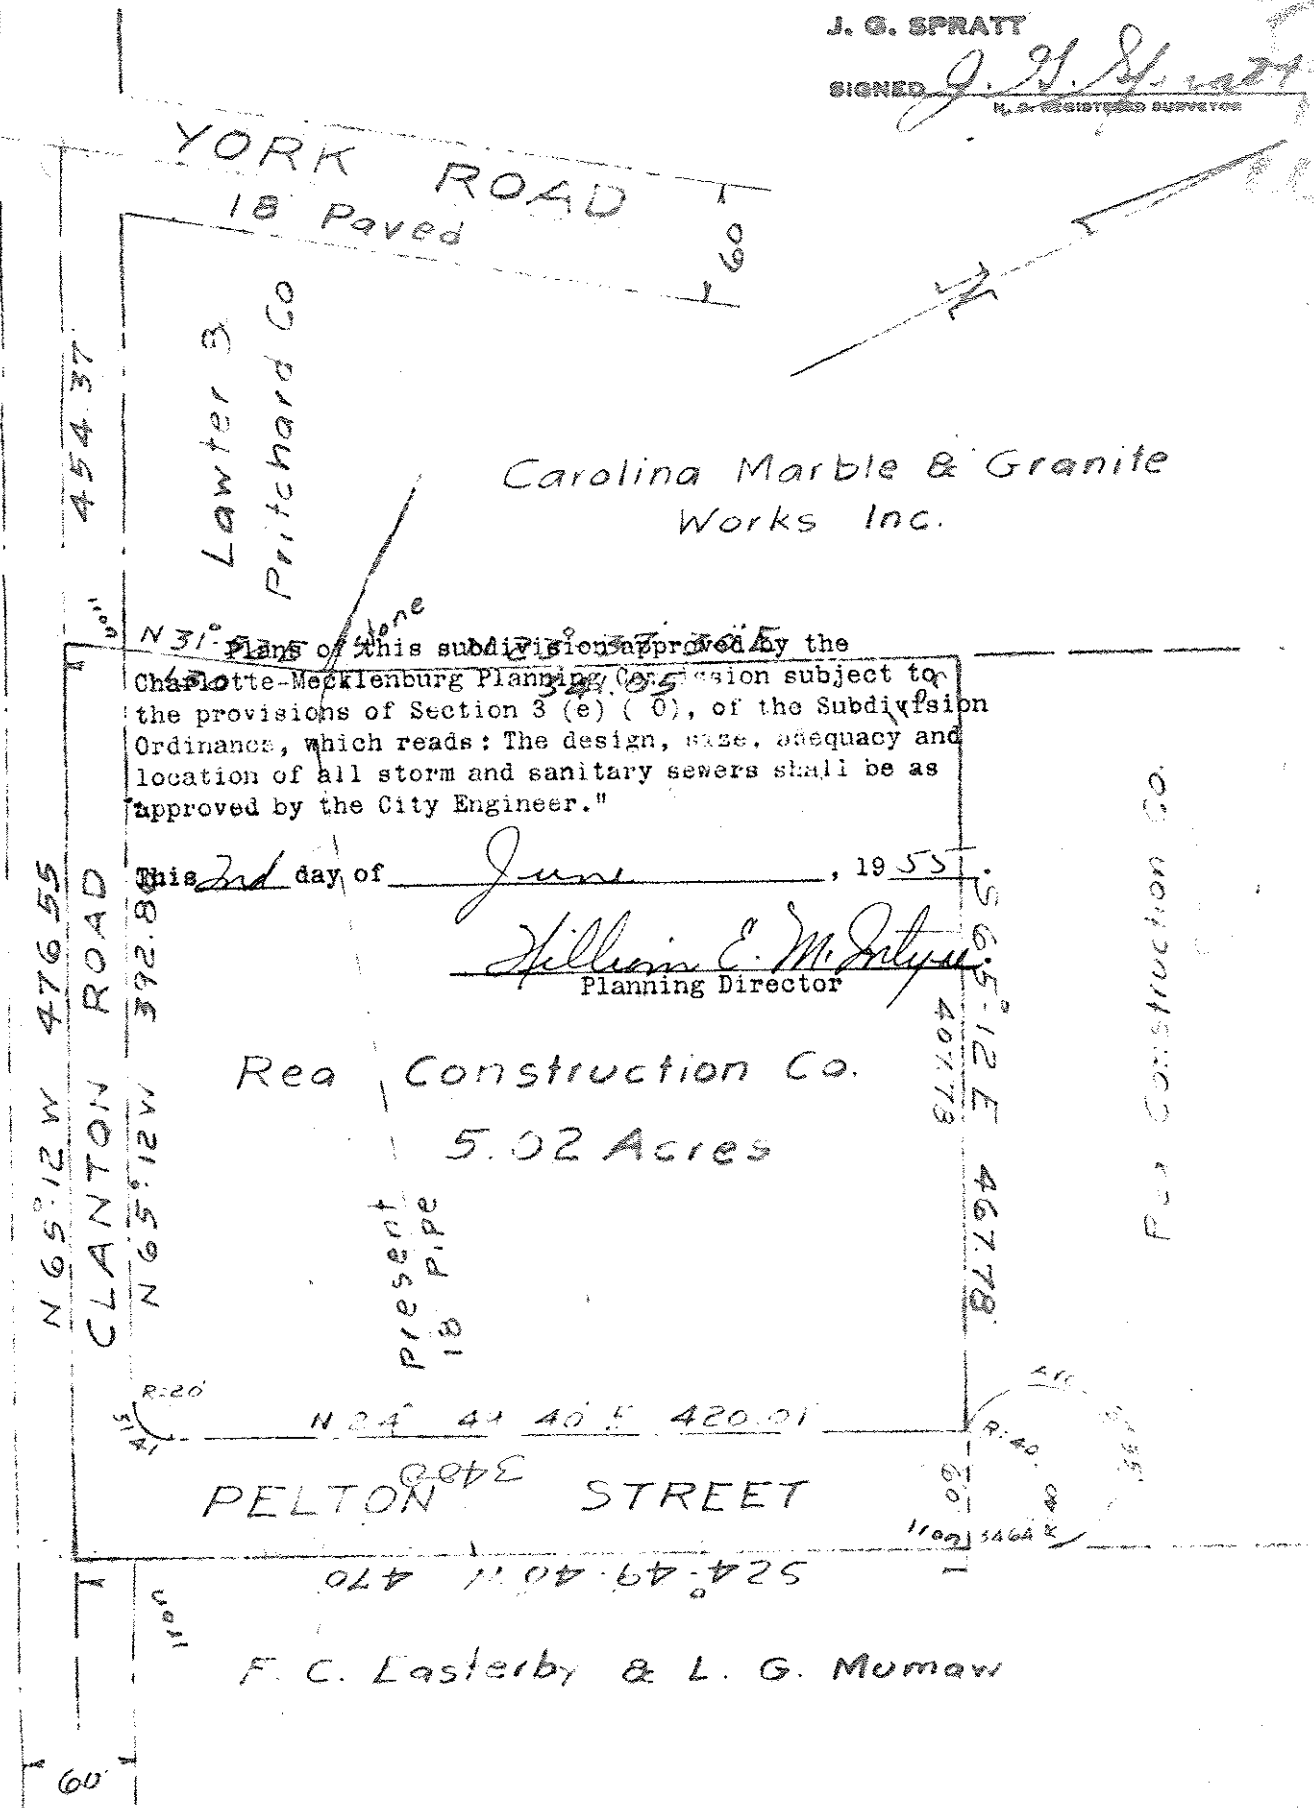 J. G. SPRATT
SIGNED J. G. Spratt
N. C. REGISTERED SURVEYOR
YORK ROAD
18 Paved
60
N
454.37
Lawter &
Pritchard Co
Carolina Marble & Granite
Works Inc.
Iron
N 31°
Stone
Plans of this subdivision approved by the
Charlotte-Mecklenburg Planning Commission subject to
the provisions of Section 3 (e) ( 0), of the Subdivision
Ordinance, which reads: The design, size, adequacy and
location of all storm and sanitary sewers shall be as
approved by the City Engineer."
341.05
This 2nd day of June, 1955.
William E. McIntyre
Planning Director
N 65°:12 W 476.55
CLANTON ROAD
N 65°:12 W 392.80
Rea Construction Co.
5.02 Acres
S 65°:12 E 467.78
407.78
Construction Co.
Present
18 Pipe
R:20'
N 24° 49 40 E 420.01
348
PELTON STREET
60
Iron
R:40
Arc
S 24°:49:40 W 470
Iron
F. C. Easterby & L. G. Mumaw
60